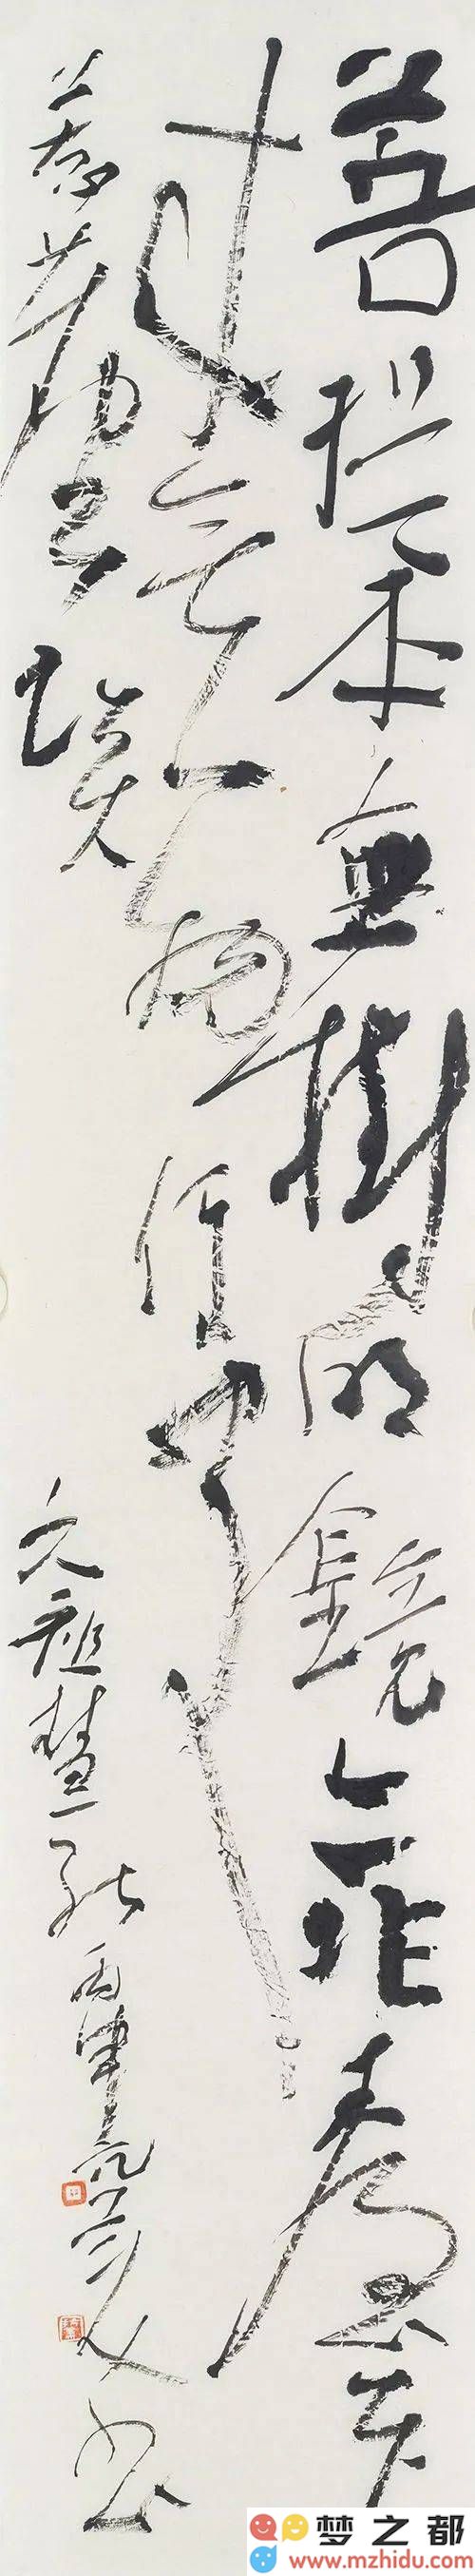 菩提本無樹明鏡亦非臺本
来無一物何處
惹塵埃
六祖慧能書
梦之都
www.mzhidu.com